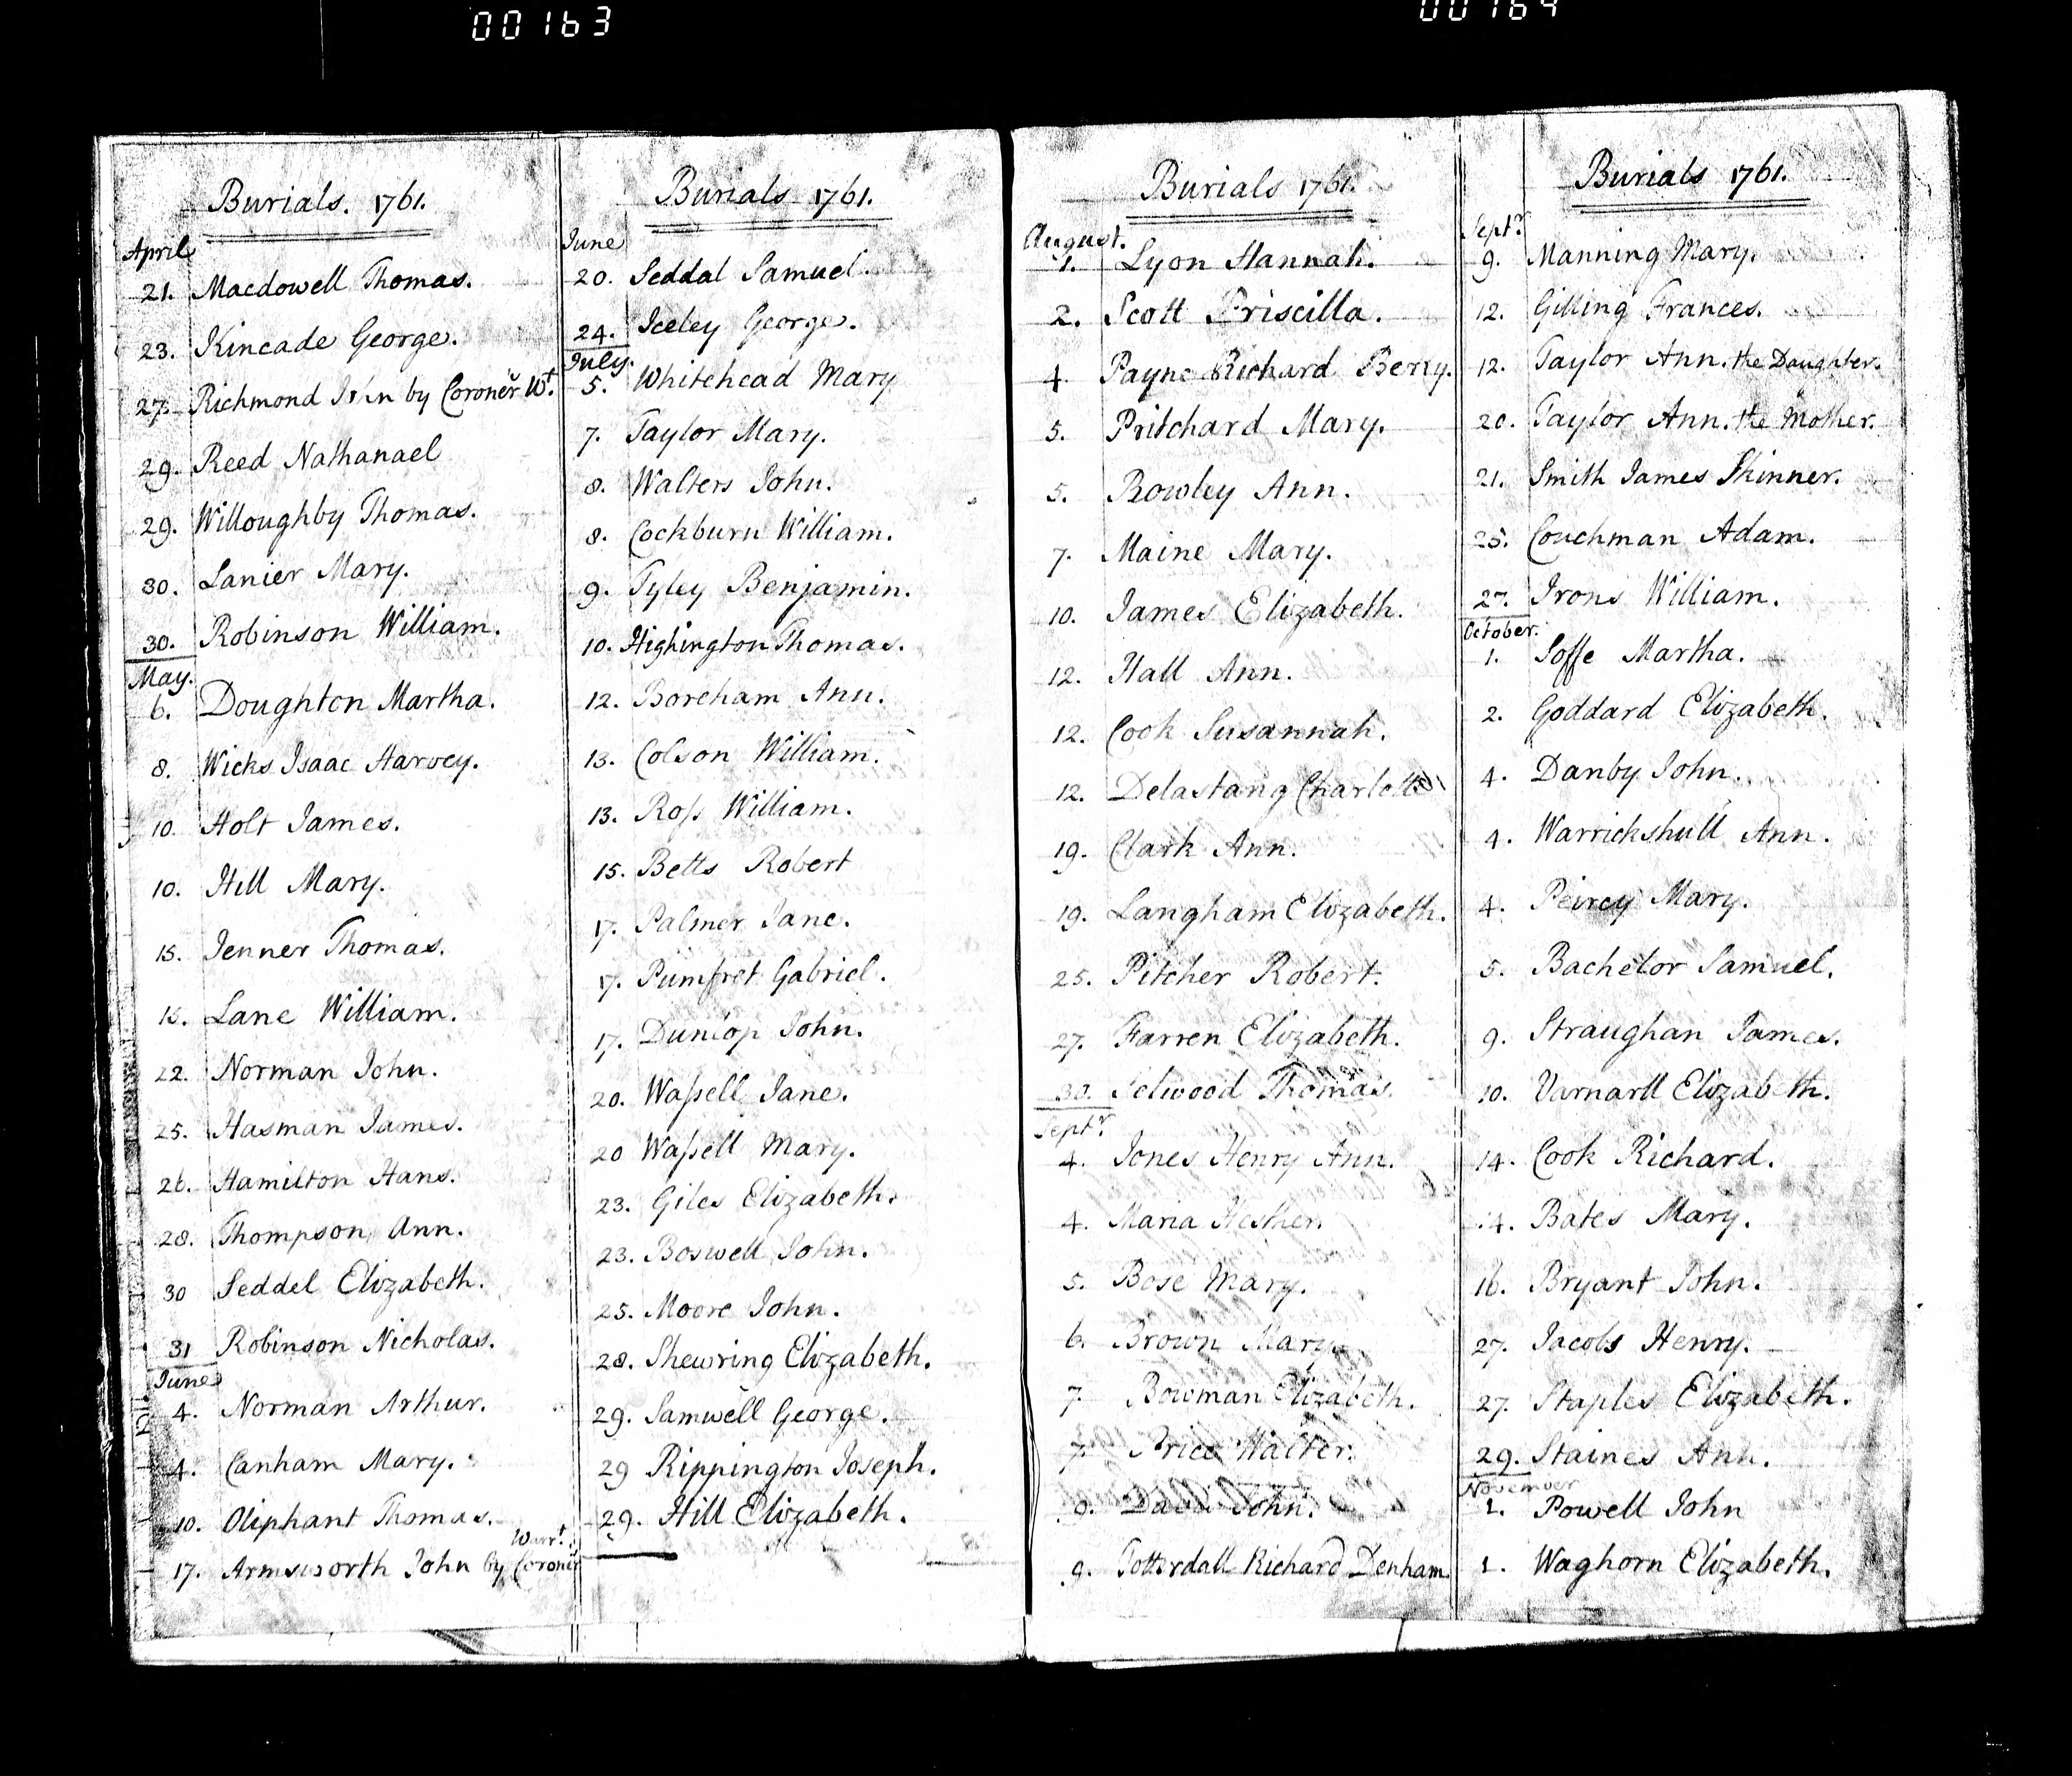 00163
00164
Burials. 1761.
April
21. Macdowell Thomas.
23. Kincade George.
27. Richmond by Coroner Wt.
29. Reed Nathanael
29. Willoughby Thomas.
30. Lanier Mary.
30. Robinson William.
May.
6. Doughton Martha.
8. Wicks Isaac Harvey.
10. Holt James.
10. Hill Mary.
15. Jenner Thomas.
15. Lane William.
22. Norman John.
25. Hasman James.
26. Hamilton Hans.
28. Thompson Ann.
30 Seddel Elizabeth.
31 Robinson Nicholas.
June
4. Norman Arthur.
4. Canham Mary.
10. Oliphant Thomas.
17. Armsworth John by Coroner Warrt.
Burials 1761.
June
20. Seddal Samuel.
24. Iceley George.
July.
5. Whitehead Mary
7. Taylor Mary.
8. Walters John.
8. Cockburn William.
9. Tyley Benjamin.
10. Highington Thomas.
12. Boreham Ann.
13. Colson William.
13. Roſs William.
15. Betts Robert
17. Palmer Jane.
17. Pumfret Gabriel.
17. Dunlop John.
20. Waſsell Jane.
20 Waſsell Mary.
23. Giles Elizabeth.
23. Boswell John.
25. Moore John.
28. Shewring Elizabeth.
29. Samwell George.
29 Rippington Joseph.
29. Hill Elizabeth.
Burials 1761.
August.
1. Lyon Hannah.
2. Scott Priscilla.
4. Payne Richard Berry.
5. Pritchard Mary.
5. Rowley Ann.
7. Maine Mary.
10. James Elizabeth.
12. Hall Ann.
12. Cook Susannah.
12. Delastang Charlotte
19. Clark Ann.
19. Langham Elizabeth.
25. Pitcher Robert.
27. Farren Elizabeth.
30. Selwood Thomas.
Septr.
4. Jones Henry Ann.
4. Maria Hesther.
5. Bose Mary.
6. Brown Mary.
7. Bowman Elizabeth.
7. Price Walter.
9. John.
9. Totterdall Richard Denham
Burials 1761.
Septr.
9. Manning Mary.
12. Gilling Frances.
12. Taylor Ann. the Daughter.
20. Taylor Ann. the Mother.
21. Smith James Skinner.
25. Couchman Adam.
27. Irons William.
October.
1. Joffe Martha.
2. Goddard Elizabeth.
4. Danby John.
4. Warrickshull Ann.
4. Peircy Mary.
5. Bachelor Samuel.
9. Straughan James.
10. Varnarll Elizabeth.
14. Cook Richard.
14. Bates Mary.
16. Bryant John.
27. Jacobs Henry.
27. Staples Elizabeth.
29. Staines Ann.
November
1. Powell John
1. Waghorn Elizabeth.